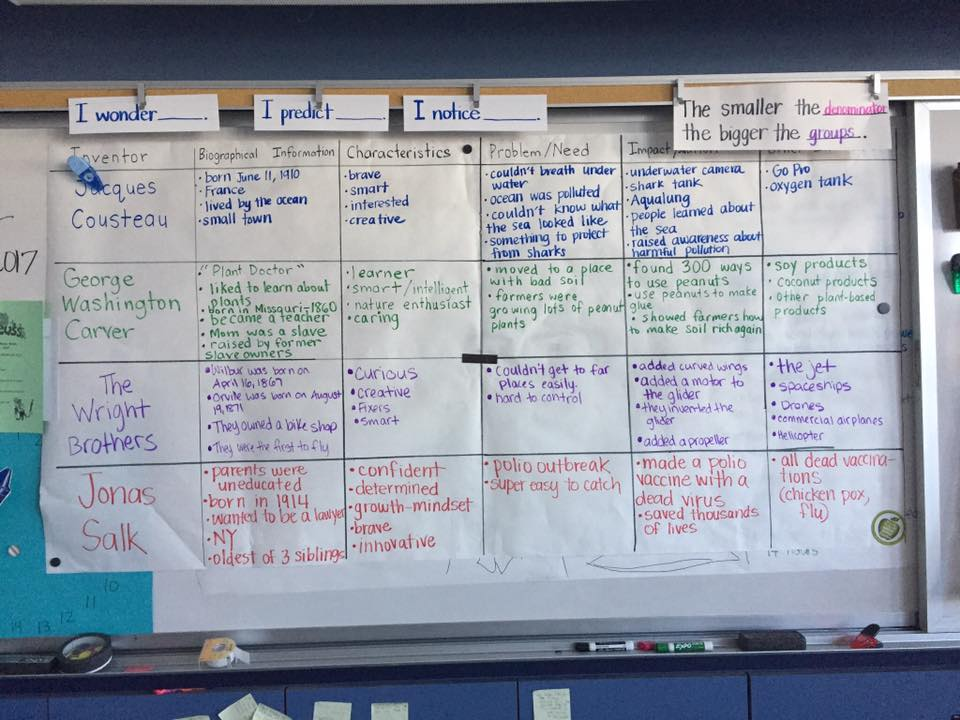 I wonder____.
I predict____.
I notice____.
The smaller the denominator
the bigger the groups..
Inventor
Biographical Information
Characteristics
Problem/Need
Impact
Jacques
Cousteau
• born June 11, 1910
• France
• lived by the ocean
• small town
• brave
• smart
• interested
• creative
• couldn't breath under
water
• ocean was polluted
• couldn't know what
the sea looked like
• something to protect
from sharks
• underwater camera
• shark tank
• Aqualung
• people learned about
the sea
• raised awareness about
harmful pollution
• Go Pro
• oxygen tank
George
Washington
Carver
• "Plant Doctor"
• liked to learn about
plants
• born in Missouri-1860
• became a teacher
• Mom was a slave
• raised by former
slave owners
• learner
• smart/intelligent
• nature enthusiast
• caring
• moved to a place
with bad soil
• farmers were
growing lots of peanut
plants
• found 300 ways
to use peanuts
• use peanuts to make
glue
• showed farmers how
to make soil rich again
• soy products
• coconut products
• other plant-based
products
The
Wright
Brothers
• Wilbur was born on
April 16, 1867
• Orville was born on August
19, 1871
• They owned a bike shop
• They were the first to fly
• Curious
• creative
• Fixers
• smart
• Couldn't get to far
places easily.
• hard to control
• added curved wings
• added a motor to
the glider
• they invented the
glider
• added a propeller
• the jet
• spaceships
• Drones
• commercial airplanes
• Helicopter
Jonas
Salk
• parents were
uneducated
• born in 1914
• wanted to be a lawyer
• NY
• oldest of 3 siblings
• confident
• determined
• growth-mindset
• brave
• innovative
• polio outbreak
• super easy to catch
• made a polio
vaccine with a
dead virus
• saved thousands
of lives
• all dead vaccina-
tions
(chicken pox,
flu)
017
10
11
12
13
EXPO